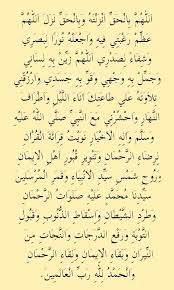 اَللّٰهُمَّ بِالْحَقِّ اَنْزَلْتَهُ وَبِالْحَقِّ نَزَلَ اَللّٰهُمَّ
عَظِّمْ رَغْبَتِي فِيهِ وَاجْعَلْهُ نُورًا لِبَصَرِي
وَشِفَاءً لِصَدْرِي اَللّٰهُمَّ زَيِّنْ بِهِ لِسَانِي
وَجَمِّلْ بِهِ وَجْهِي وَقَوِّ بِهِ جَسَدِي وَارْزُقْنِي
تِلَاوَتَهُ عَلَى طَاعَتِكَ اٰنَاءَ اللَّيْلِ وَاَطْرَافَ
النَّهَارِ وَاحْشُرْنِي مَعَ النَّبِيِّ صَلَّى اللّٰهُ عَلَيْهِ
وَسَلَّمَ وَاٰلِهِ الْاَخْيَارِ نَوَيْتُ قِرَائَةَ الْقُرْاٰنِ
لِرِضَاءِ الرَّحْمَانِ وَتَنْوِيرِ قُبُورِ اَهْلِ الْاِيمَانِ
وَرُوحِ شَمْسِ سَيِّدِ الْاَنْبِيَاءِ وَقَمَرِ الْمُرْسَلِينَ
سَيِّدِنَا مُحَمَّدٍ عَلَيْهِ صَلَوَاتُ الرَّحْمَانِ
وَطَرْدِ الشَّيْطَانِ وَاِسْقَاطِ الذُّنُوبِ وَقَبُولِ
التَّوْبَةِ وَرَفْعِ الدَّرَجَاتِ وَالنَّجَاتِ مِنَ
النِّيرَانِ وَبَقَاءِ الْاِيمَانِ وَلِقَاءِ الرَّحْمَانِ
وَالْحَمْدُ لِلّٰهِ رَبِّ الْعَالَمِينَ.